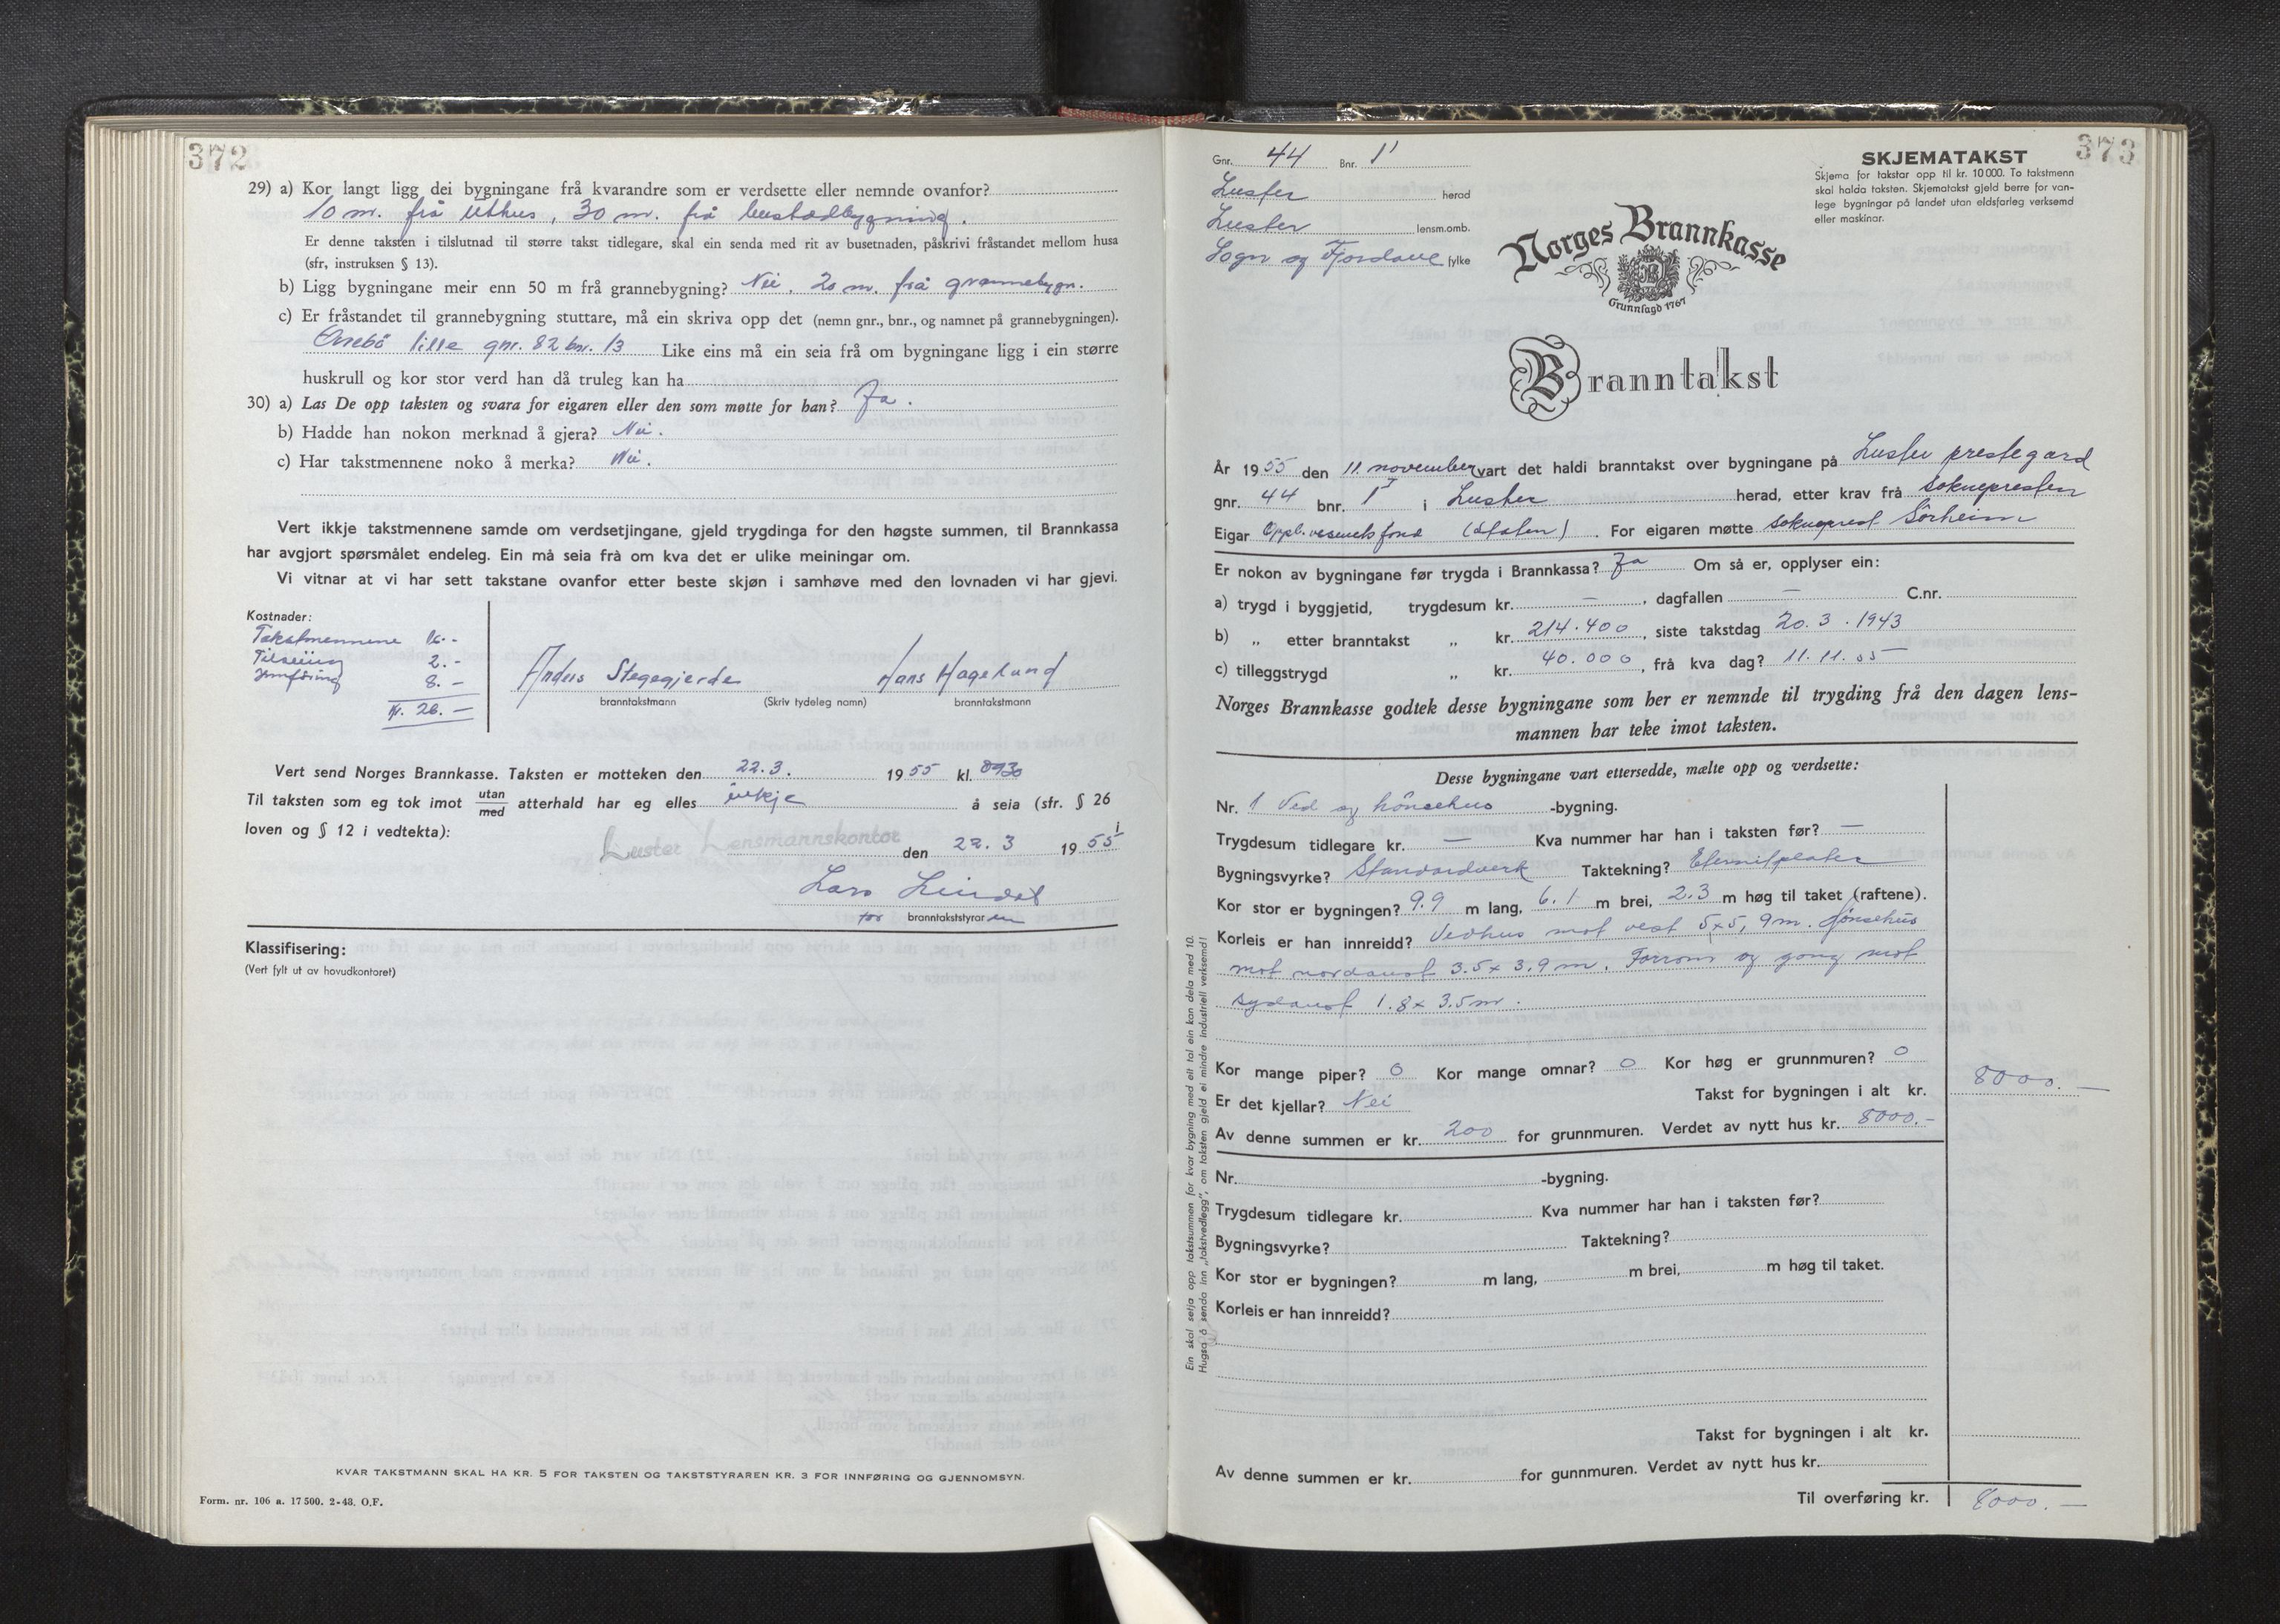 372
29) a) Kor langt ligg dei bygningane frå kvarandre som er verdsette eller nemnde ovanfor?
10 m. frå Uthus, 30 m. frå bustadbygning.
Er denne taksten i tilslutnad til større takst tidlegare, skal ein senda med rit av busetnaden, påskrivi fråstandet mellom husa
(sfr, instruksen § 13).
b) Ligg bygningane meir enn 50 m frå grannebygning? Nei. 20 m. frå grannebygn.
c) Er fråstandet til grannebygning stuttare, må ein skriva opp det (nemn gnr., bnr., og namnet på grannebygningen).
lille gnr. 82 bnr. 13 Like eins må ein seia frå om bygningane ligg i ein større
huskrull og kor stor verd han då truleg kan ha
30) a) Las De opp taksten og svara for eigaren eller den som møtte for han? Ja.
b) Hadde han nokon merknad å gjera? Nei.
c) Har takstmennene noko å merka? Nei.
Vert ikkje takstmennene samde om verdsetjingane, gjeld trygdinga for den høgste summen, til Brannkassa
har avgjort spørsmålet endeleg. Ein må seia frå om kva det er ulike meiningar om.
Vi vitnar at vi har sett takstane ovanfor etter beste skjøn i samhøve med den lovnaden vi har gjevi.
Kostnader:
Takstmennene 16.-
Tilseiing 2.-
Innføring 8.-
kr. 26.-
Anders Stegegjerde Hans Hagelund
branntakstmann (Skriv tydeleg namn) branntakstmann
Vert send Norges Brannkasse. Taksten er motteken den 22.3. 1955 kl. 0930
Til taksten som eg tok imot utan/med atterhald har eg elles inkje å seia (sfr. § 26
loven og § 12 i vedtekta):
Luster Lensmannskontor den 22.3 1955
Lars Lindal
for branntakststyraren
Klassifisering:
(Vert fylt ut av hovudkontoret)
KVAR TAKSTMANN SKAL HA KR. 5 FOR TAKSTEN OG TAKSTSTYRAREN KR. 3 FOR INNFØRING OG GJENNOMSYN.
Form. nr. 106 a. 17 500. 2-48. O.F.
373
Gnr. 44 Bnr. 1'
Luster herad
Luster lensm.omb.
Sogn og Fjordane fylke
SKJEMATAKST
Skjema for takstar opp til kr. 10 000. To takstmenn
skal halda taksten. Skjematakst gjeld berre for van-
lege bygningar på landet utan eldsfarleg verksemd
eller maskinar.
Norges Brannkasse
Grunnlagd 1767
Branntakst
År 1955 den 11. november vart det haldi branntakst over bygningane på Luster prestegard
gnr. 44 bnr. 1' i Luster herad, etter krav frå soknepresten
Eigar Oppl.vesenets fond (staten). For eigaren møtte sokneprest Sörheim
Er nokon av bygningane før trygda i Brannkassa? Ja Om så er, opplyser ein:
a) trygd i byggjetid, trygdesum kr. — , dagfallen — C.nr.
b) „ etter branntakst „ kr. 214.400, siste takstdag 20.3.1943
c) tilleggstrygd „ kr. 40.000, frå kva dag? 11.11.55
Norges Brannkasse godtek desse bygningane som her er nemnde til trygding frå den dagen lens-
mannen har teke imot taksten.
Desse bygningane vart ettersedde, mælte opp og verdsette:
Nr. 1 Ved og hönsehus -bygning.
Trygdesum tidlegare kr. — Kva nummer har han i taksten før? —
Bygningsvyrke? Standardverk Taktekning? Eternitplater
Kor stor er bygningen? 9.9 m lang, 6.1 m brei, 2.3 m høg til taket (raftene).
Korleis er han innreidd? Vedhus mot vest 5x5,9 m. Hönsehus
mot nordaust 3.5 x 3.9 m. Forrom og gang mot
sydaust 1.8 x 3.5 m.
Kor mange piper? 0 Kor mange omnar? 0 Kor høg er grunnmuren? 0
Er det kjellar? Nei Takst for bygningen i alt kr. 8000.—
Av denne summen er kr. 200 for grunnmuren. Verdet av nytt hus kr. 8000.-
Nr. -bygning.
Trygdesum tidlegare kr. Kva nummer har han i taksten før?
Bygningsvyrke? Taktekning?
Kor stor er bygningen? m lang, m brei, m høg til taket.
Korleis er han innreidd?
Takst for bygningen i alt kr.
Av denne summen er kr. for gunnmuren. Verdet av nytt hus kr.
Til overføring kr. 8000.—
Ein skal setja opp takstsummen for kvar bygning med eit tal ein kan dela med 10.
Hugsa å senda inn „takstvedlegg”, om taksten gjeld ei mindre industriell verksemd!